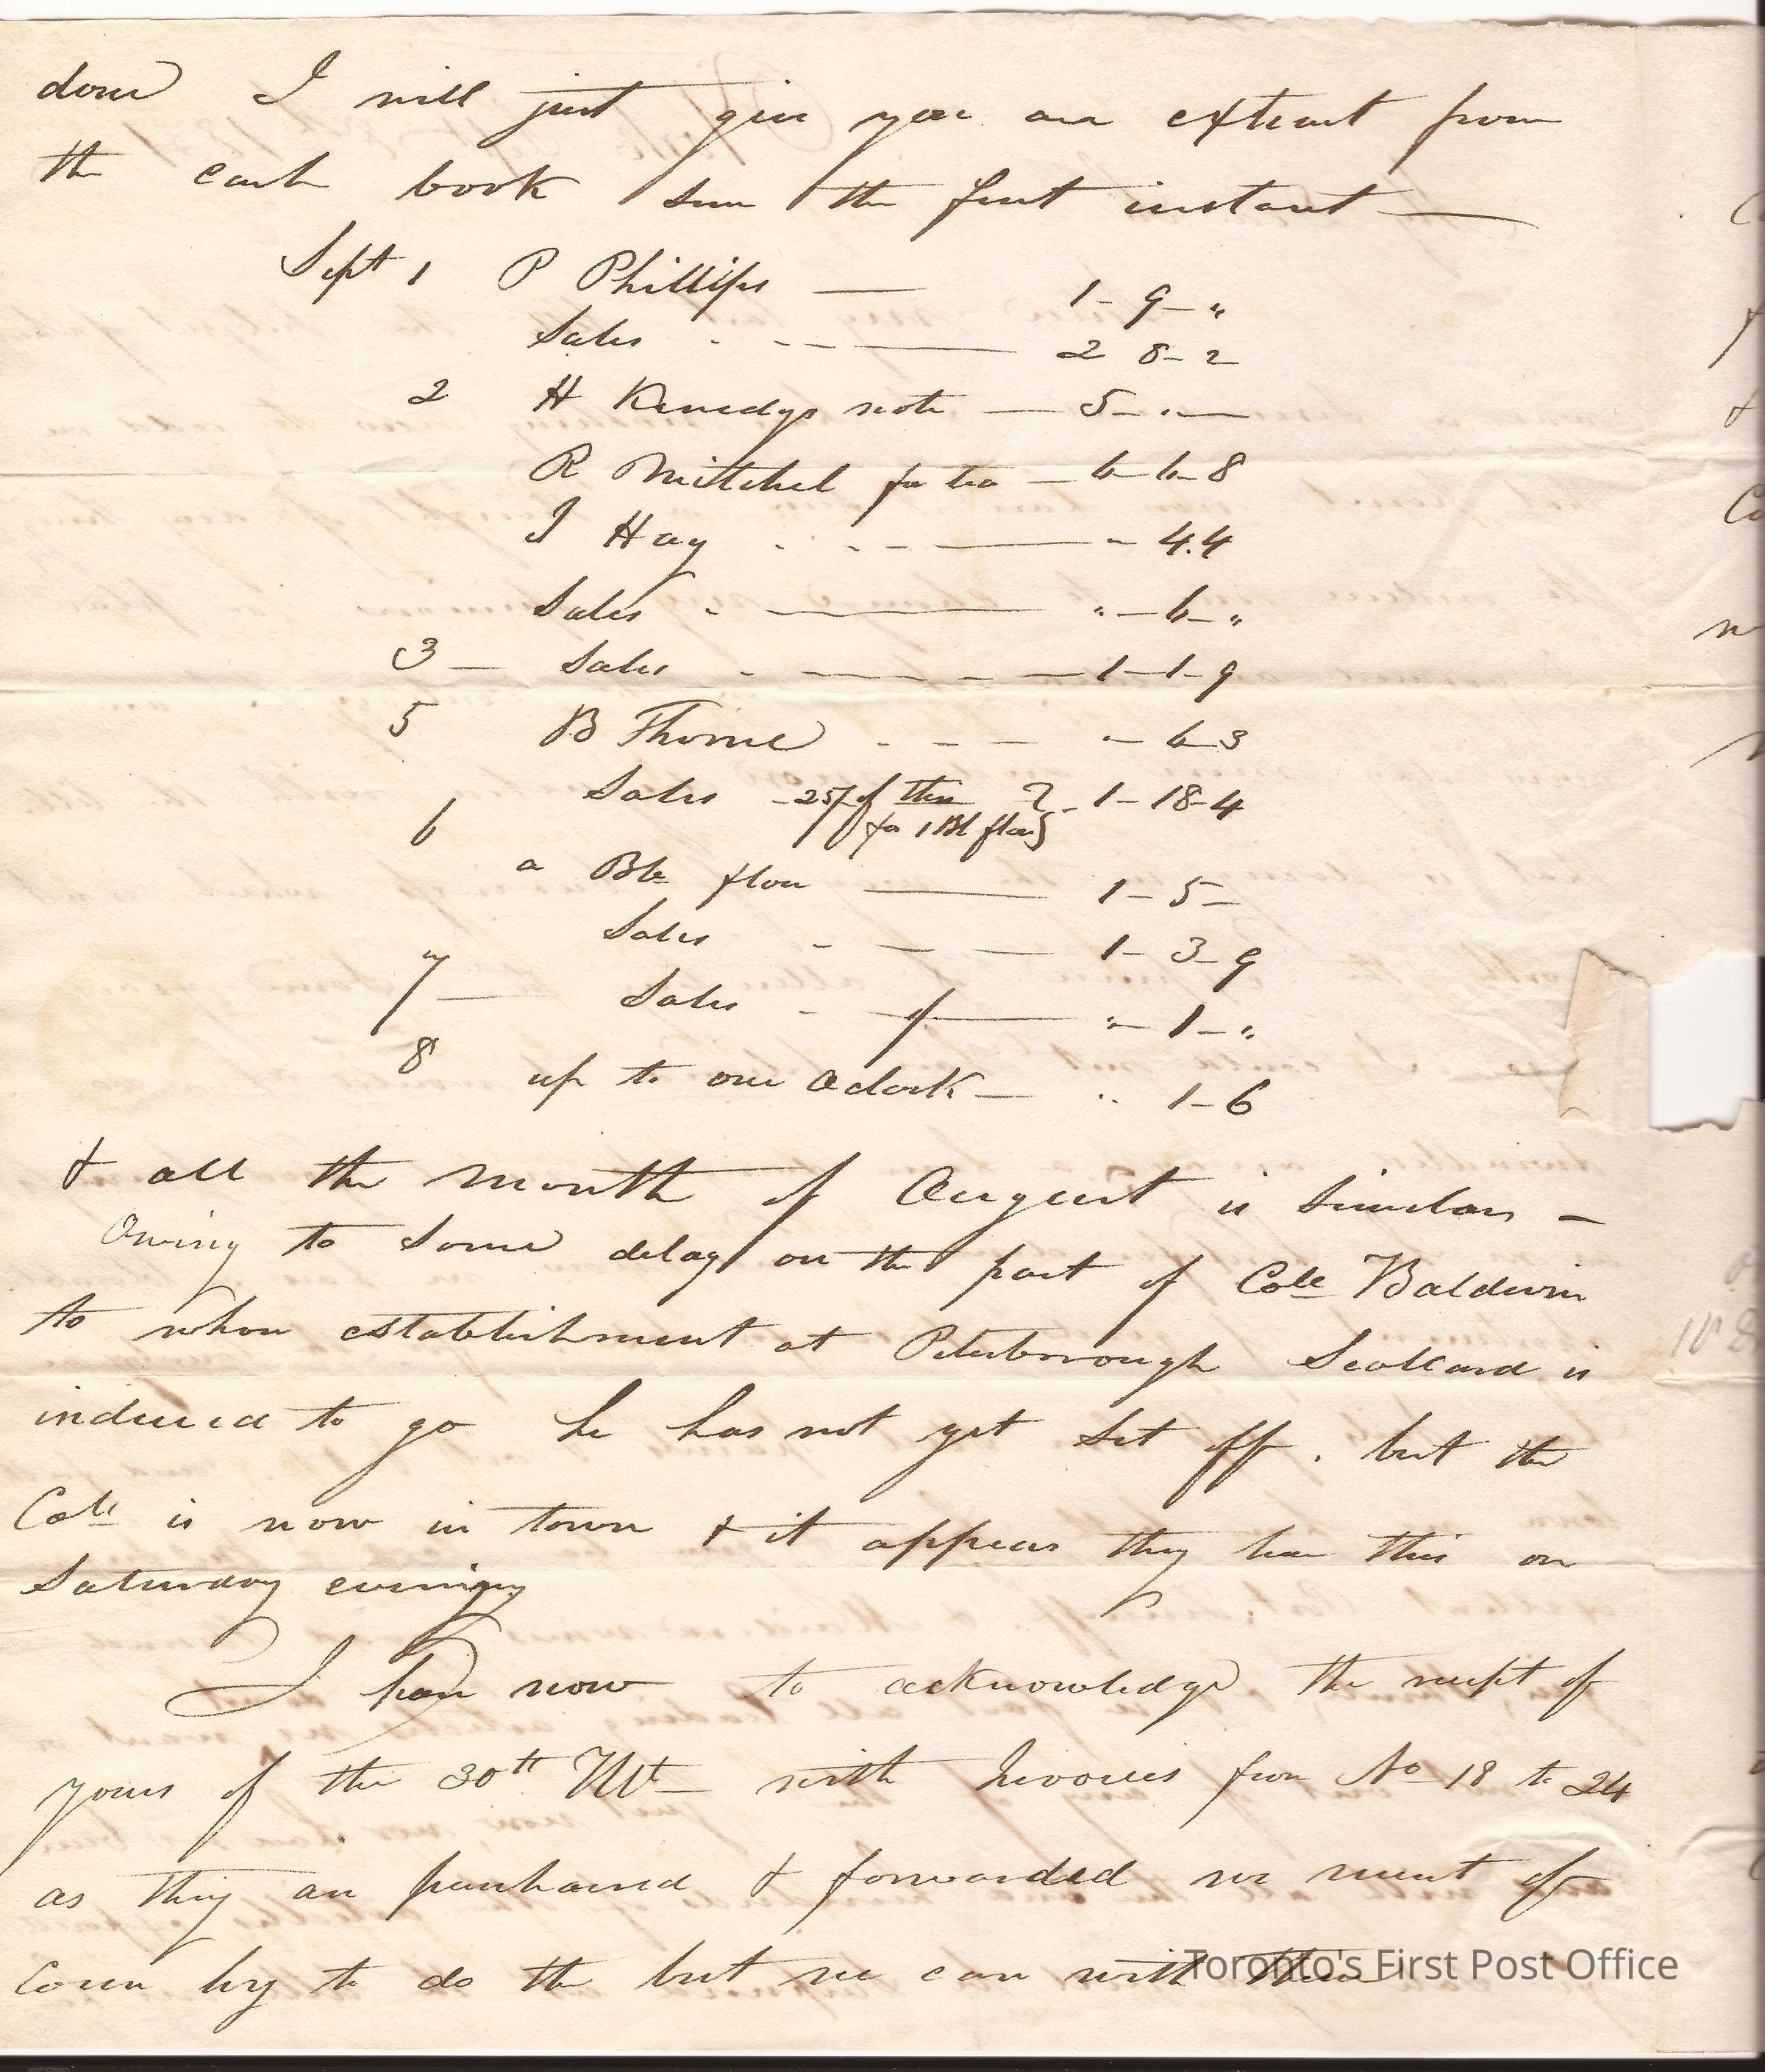 done I will just give you an extract from
the cash book since the first instant —
Sept 1 P Phillips — 1 - 9 - "
Sales - - - — 2 8 - 2
2 H Kenedys note — 5 - " —
R Mitchel for tea — 6 - 6 - 8
J Hay - - - — " 4.4
Sales - — " - 6 - "
3 — Sales - — 1 - 1 - 9
5 B Thorne - - - " - 6 - 3
Sales - 25/ of this } 1 - 18 - 4
for 1 Bl flour
6 a Ble flour — 1 - 5 -
Sales - — 1 - 3 - 9
7 — Sales - — " - 1 - "
8 up to one Oclock — " 1 - 6
& all the month of August is similar —
Owing to some delay on the part of Coll Baldwin
to whose establishment at Peterborough Scollard is
induced to go he has not yet set off . but the
Coll is now in town & it appears they leave this on
Saturday evening
I have now to acknowledge the receipt of
yours of the 30th Ult — with Invoices from No 18 to 24
as they are purchased & forwarded we must of
course try to do the best we can with them
Toronto's First Post Office